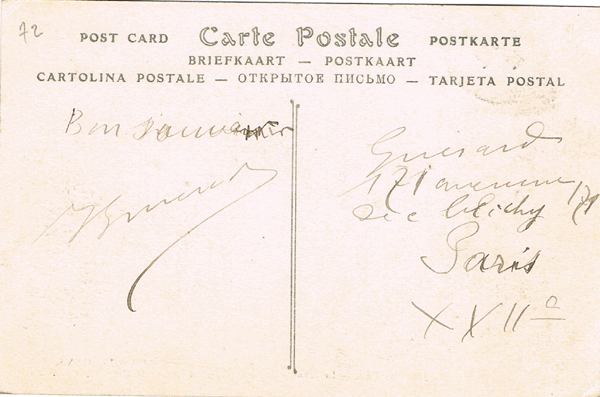 72
POST CARD Carte Postale POSTKARTE
BRIEFKAART — POSTKAART
CARTOLINA POSTALE — ОТКРЫТОЕ ПИСЬМО — TARJETA POSTAL
Bon
171 avenue 171
Clichy
Paris
XXII